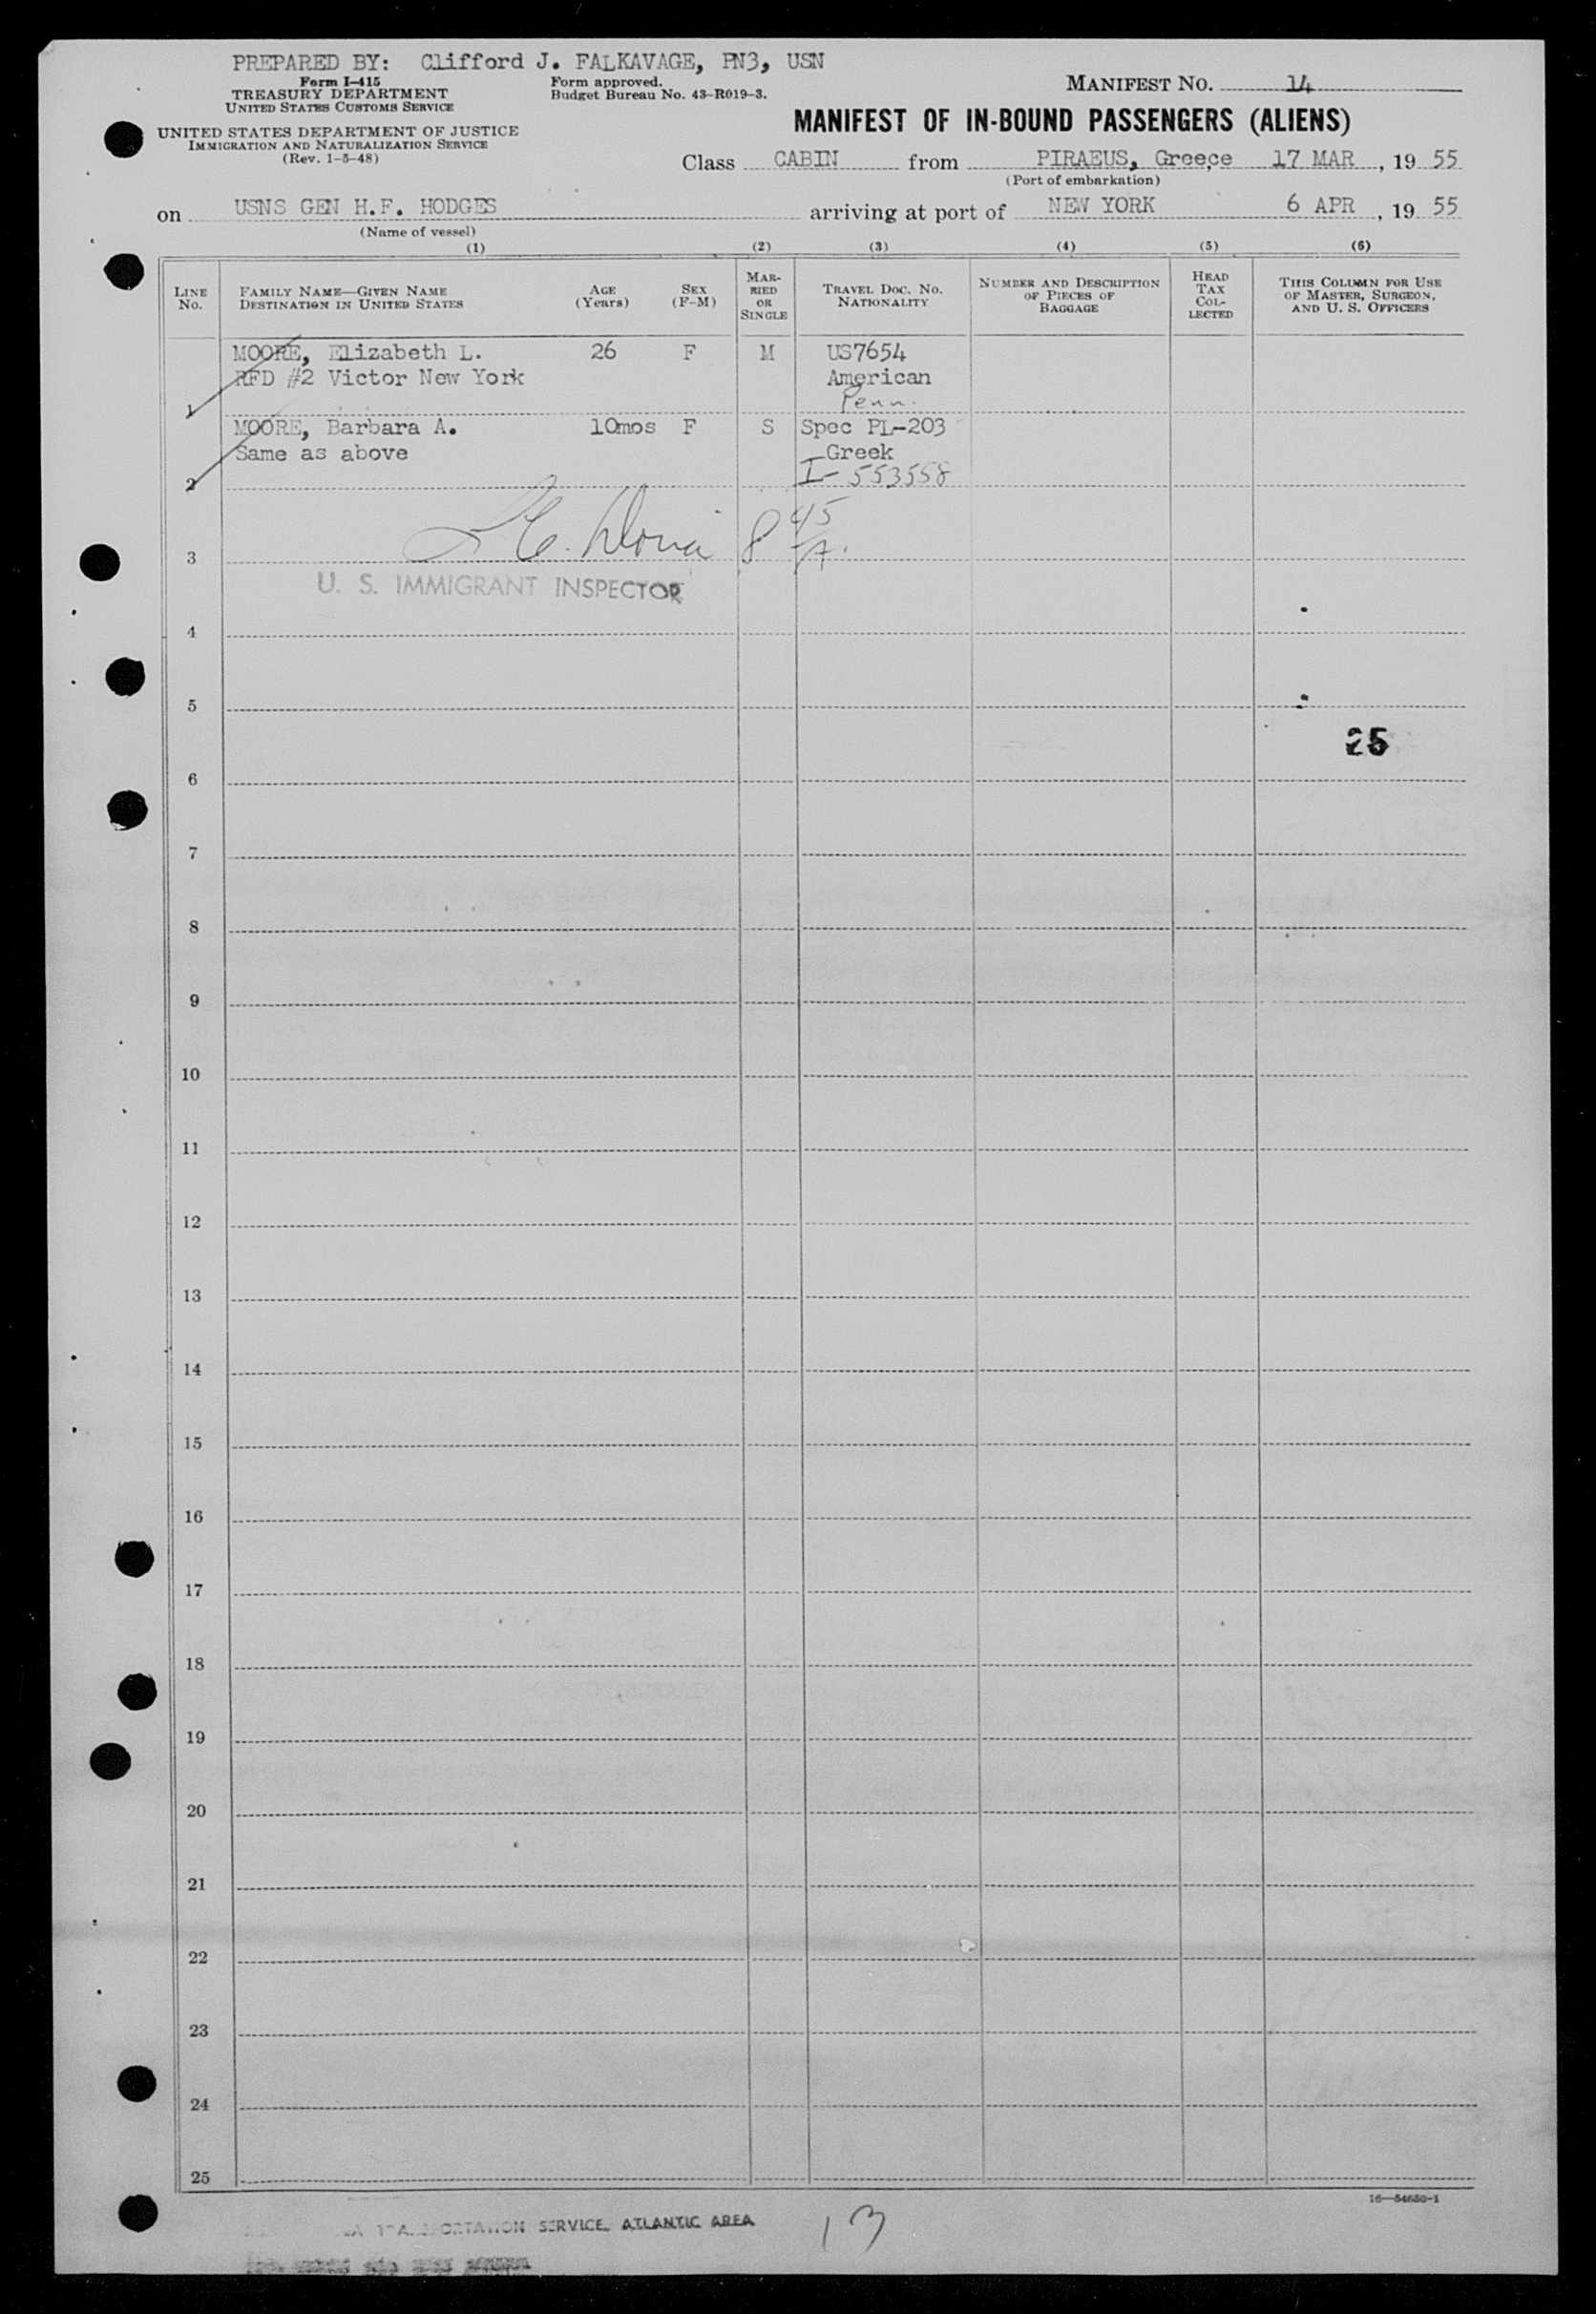 PREPARED BY: Clifford J. FALKAVAGE, PN3, USN
Form I-415
TREASURY DEPARTMENT
UNITED STATES CUSTOMS SERVICE
Form approved.
Budget Bureau No. 43-R019-3.
MANIFEST NO. 14
UNITED STATES DEPARTMENT OF JUSTICE
IMMIGRATION AND NATURALIZATION SERVICE
(Rev. 1-5-48)
MANIFEST OF IN-BOUND PASSENGERS (ALIENS)
Class CABIN from PIRAEUS, Greece 17 MAR, 19 55
(Port of embarkation)
on USNS GEN H.F. HODGES arriving at port of NEW YORK 6 APR, 19 55
(Name of vessel)
(1) (2) (3) (4) (5) (6)
LINE NO.
FAMILY NAME—GIVEN NAME
DESTINATION IN UNITED STATES
AGE
(Years)
SEX
(F-M)
MAR-
RIED
OR
SINGLE
TRAVEL DOC. NO.
NATIONALITY
NUMBER AND DESCRIPTION
OF PIECES OF
BAGGAGE
HEAD
TAX
COL-
LECTED
THIS COLUMN FOR USE
OF MASTER, SURGEON,
AND U. S. OFFICERS
MOORE, Elizabeth L. 26 F M US7654
RFD #2 Victor New York American
1 Penn.
MOORE, Barbara A. 10mos F S Spec PL-203
Same as above Greek
2 I-553558
8 45/A.
3
U. S. IMMIGRANT INSPECTOR
4
5
25
6
7
8
9
10
11
12
13
14
15
16
17
18
19
20
21
22
23
24
25
16—54650-1
SERVICE, ATLANTIC AREA
13